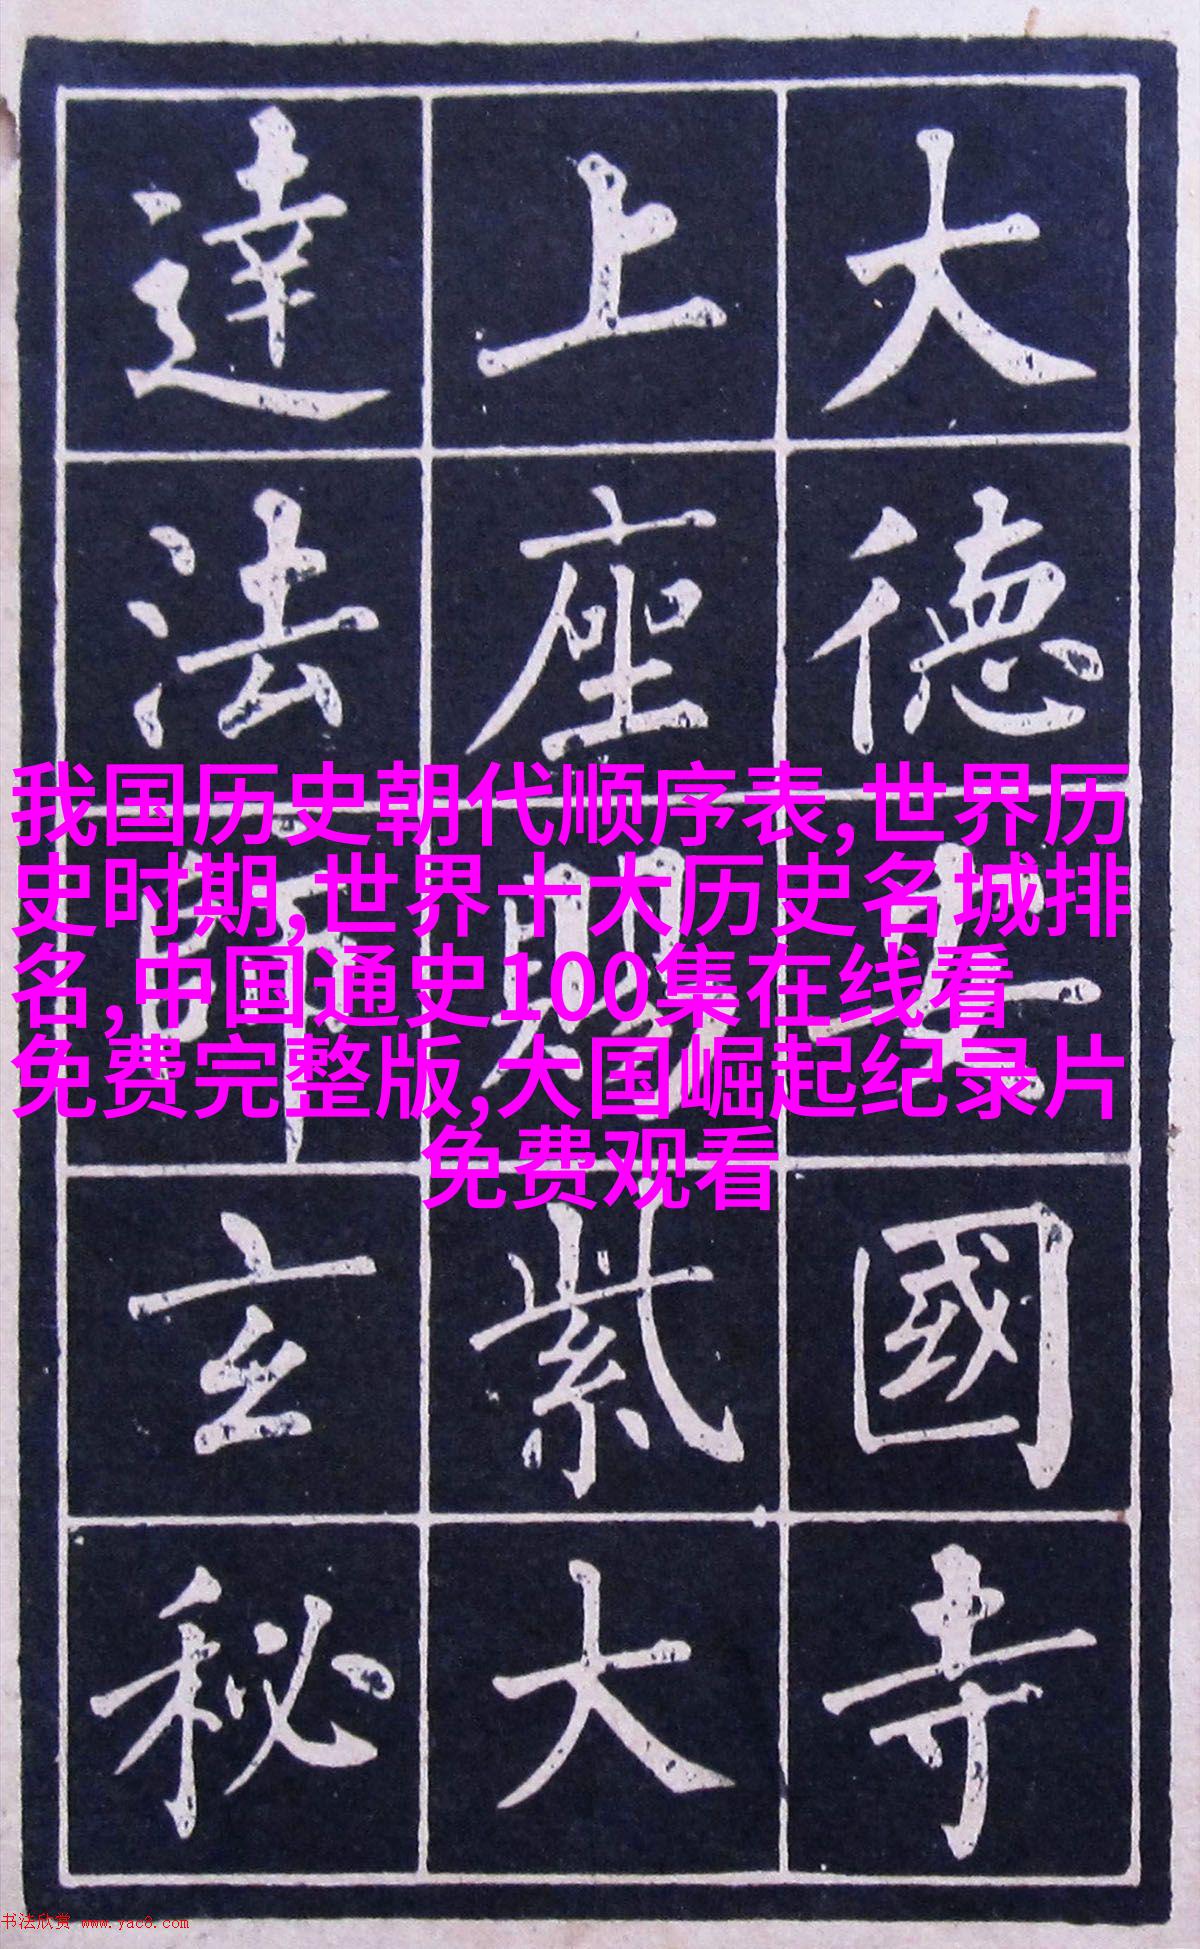 大德安國寺
上座賜紫大
達法師玄秘
我国历史朝代顺序表,世界历
史时期,世界十大历史名城排
名,中国通史100集在线看
免费完整版,大国崛起纪录片
免费观看
书法欣赏 www.yac8.com